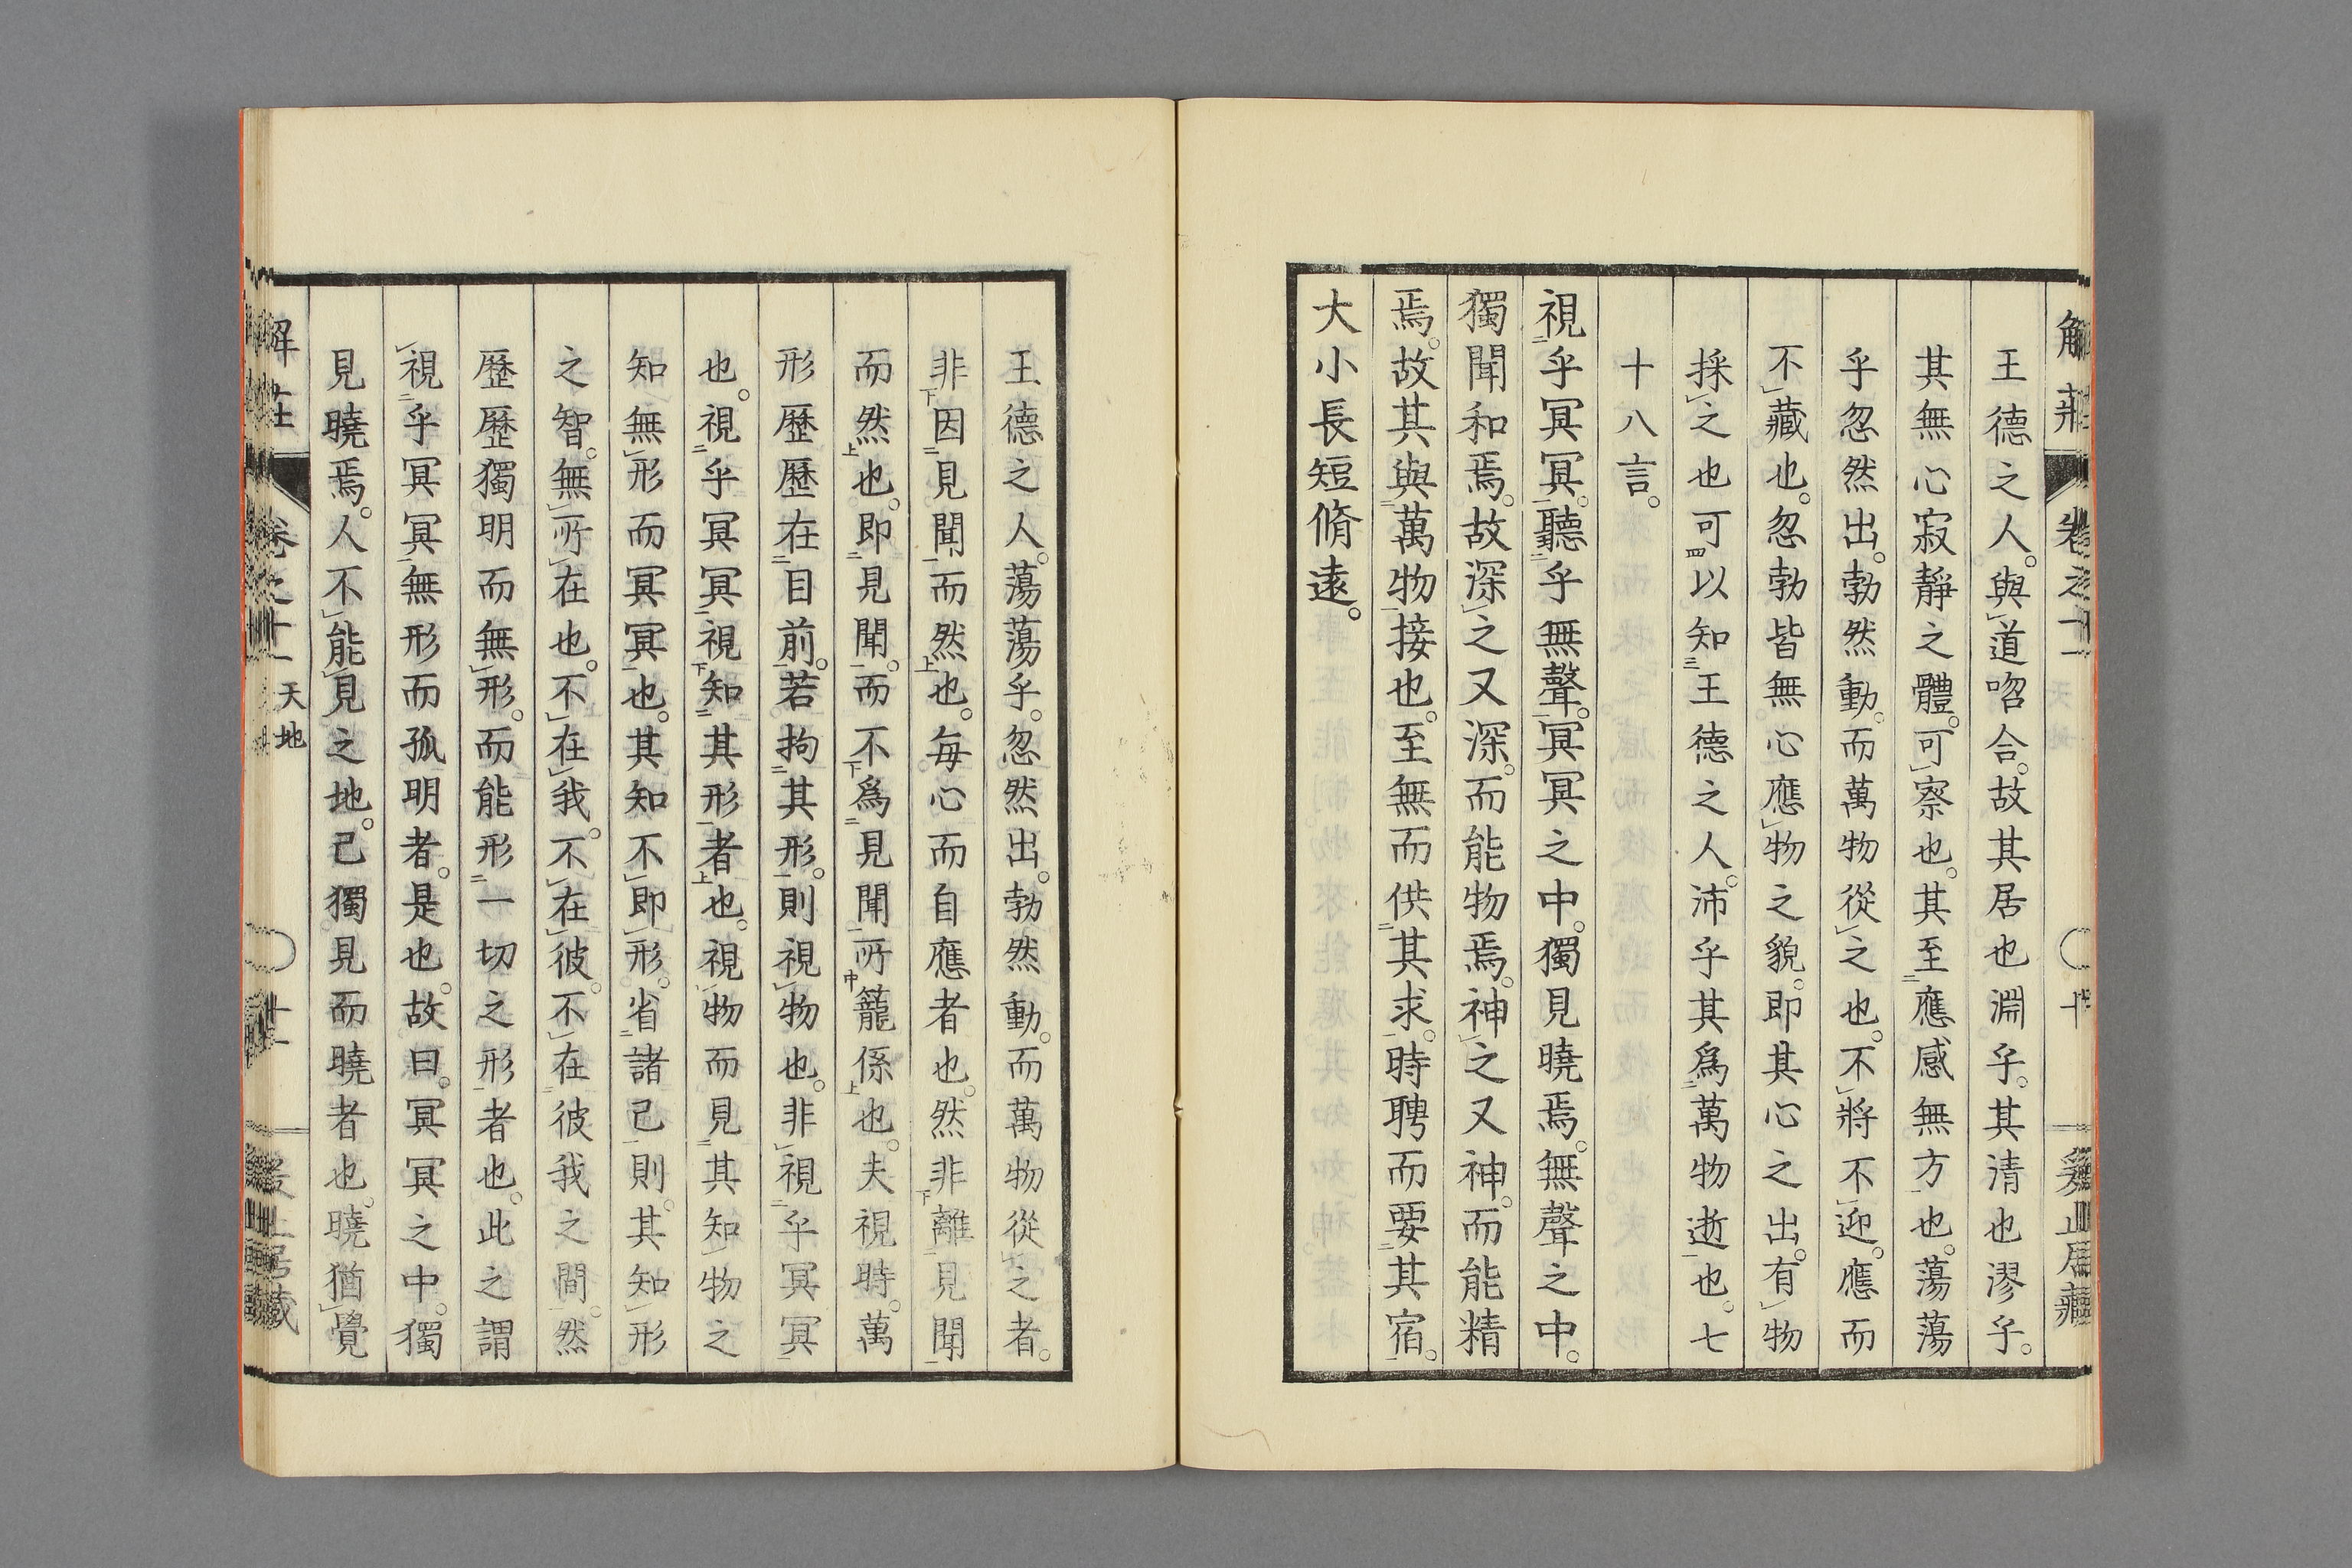 王德之人。與道吻合。故其居也淵乎。其清也漻乎。
其無心寂靜之體。可察也。其至應感無方也。蕩蕩
乎忽然出。勃然動。而萬物從之也。不將不迎。應而
不藏也。忽勃皆無心應物之貌。即其心之出。有物
採之也可以知王德之人。沛乎其爲萬物逝也。七
十八言。
視乎冥冥。聽乎無聲。冥冥之中。獨見曉焉。無聲之中。
獨聞和焉。故深之又深。而能物焉。神之又神。而能精
焉。故其與萬物接也。至無而供其求。時聘而要其宿。
大小長短脩遠。
王德之人。蕩蕩乎。忽然出。勃然動。而萬物從之者。
非因見聞而然也。每心而自應者也。然非離見聞
而然也。即見聞。而不爲見聞所籠係也。夫視時。萬
形歷歷在目前。若拘其形。則視物也。非視乎冥冥
也。視乎冥冥視知其形者也。視物而見其知物之
知無形而冥冥也。其知不即形。省諸己則。其知形
之智。無所在也。不在我。不在彼。不在彼我之間。然
歷歷獨明而無形。而能形一切之形者也。此之謂
視乎冥冥無形而孤明者。是也。故曰。冥冥之中。獨
見曉焉。人不能見之地。己獨見而曉者也。曉猶覺
天地